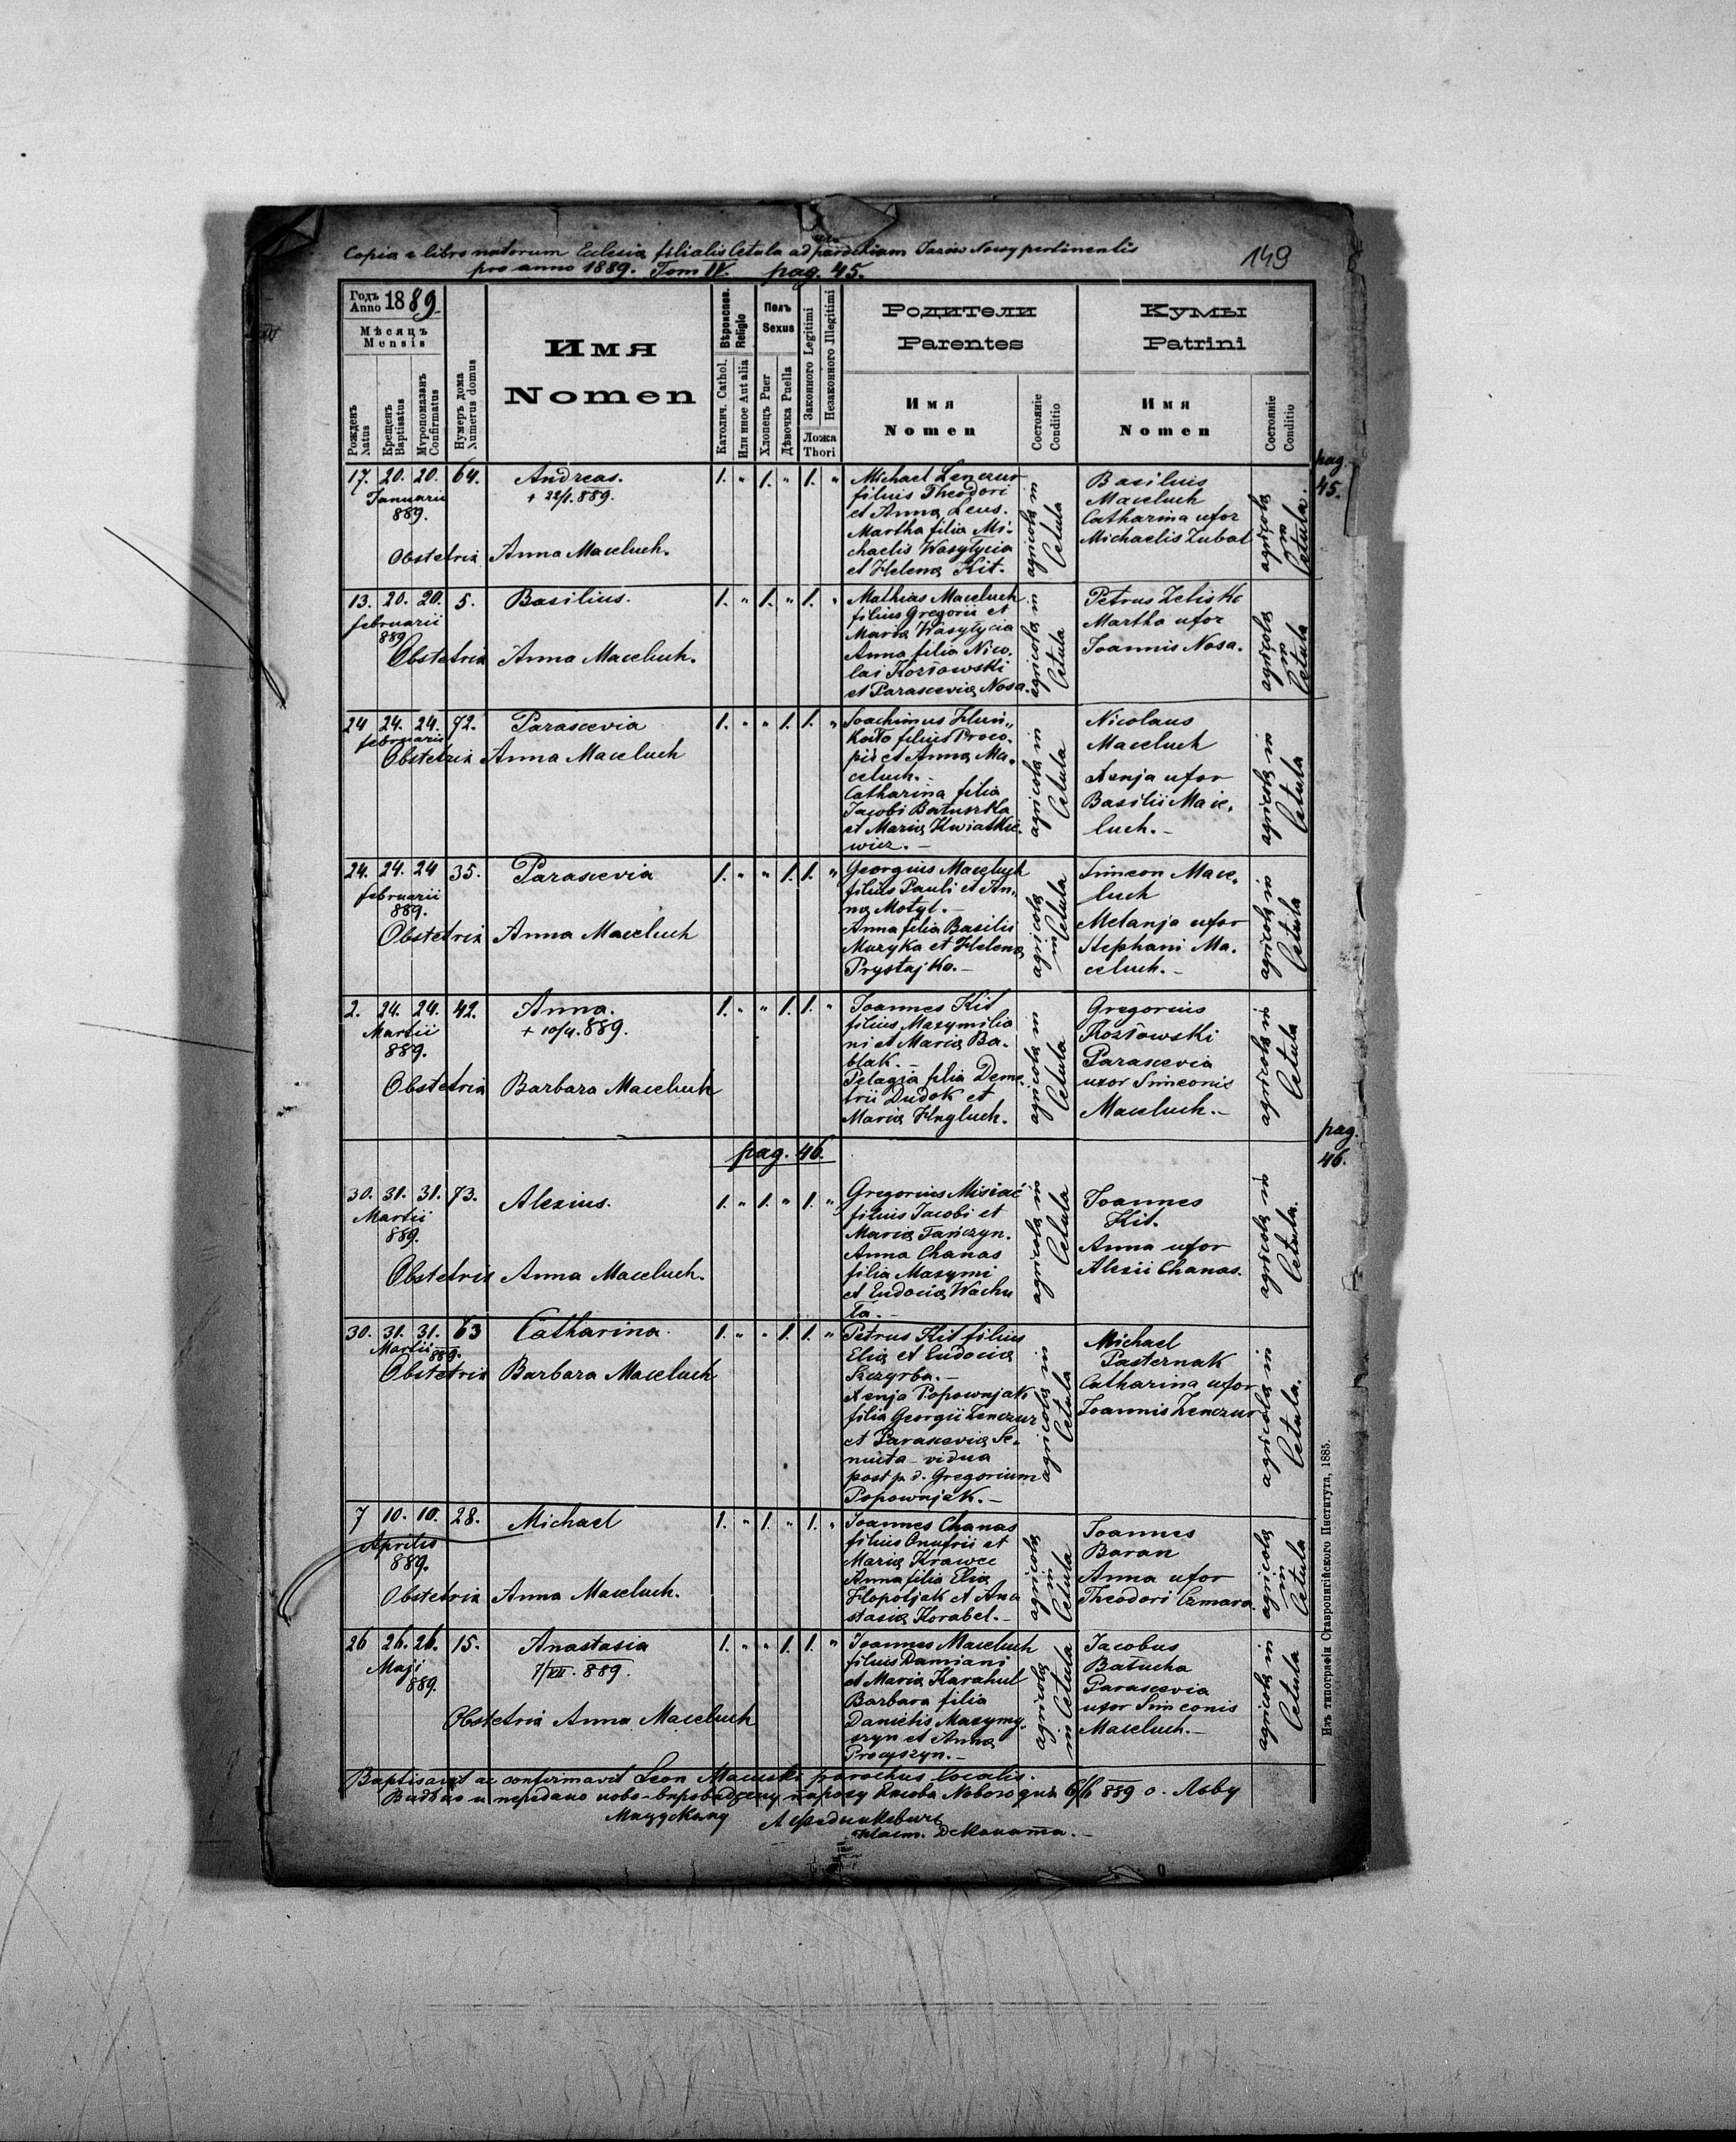 149
Copia e libro natorum Ecclesiæ filialis Cetula ad parochiam Jazów Nowy pertinentis
pro anno 1889. Tom IV. pag. 45.
Годъ Anno 1889.
Мѣсяцъ
Mensis
Рожденъ Natus
Крещенъ Baptisatus
Мѵропомазанъ Confirmatus
Нумеръ дома Numerus domus
Имя
Nomen
Вѣроисповѣд. Religio
Католич. Cathol.
Или иное Aut alia
Полъ
Sexus
Хлопецъ Puer
Дѣвочка Puella
Законного Legitimi
Незаконного Illegitimi
Ложа
Thori
Родители
Parentes
Имя
Nomen
Состояніе
Conditio
Кумы
Patrini
Имя
Nomen
Состояніе
Conditio
pag.
45.
17. 20. 20. 64.
Januarii
889.
Andreas.
+ 22/1. 889.
Obstetrix Anna Maceluch.
1. " 1. " 1. "
Michael Zenczur
filius Theodori
et Anna Leus.
Martha filia Mi-
chaelis Wasyłycia
et Helena Kit.
agricola in
Cetula
Basilius
Maceluch
Catharina uxor
Michaelis Zubal
agricola
in
Cetula.
13. 20. 20. 5.
februarii
889
Basilius.
Obstetrix Anna Maceluch.
1. " 1. " 1. "
Mathias Maceluch
filius Gregorii et
Maria Wasyłycia
Anna filia Nico-
lai Kozłowski
et Parascevia Nosa.
agricola in
Cetula
Petrus Zelisko
Martha uxor
Joannis Nosa.
agricola
in
Cetula
24 24. 24. 72.
februarii
Parascevia
Obstetrix Anna Maceluch
1. " " 1. 1. "
Joachimus
filius Proco-
pii et Anna Ma-
celuch.-
Catharina filia
Jacobi Batuszka
et Maria Kwiatkie-
wicz.-
agricola in
Cetula
Nicolaus
Maceluch
Xenja uxor
Basilii Mace-
luch.-
agricola in
Cetula
24. 24. 24 35.
februarii
889.
Parascevia
Obstetrix Anna Maceluch
1. " " 1. 1. "
Georgius Maceluch
filius Pauli et An-
na Motyl.-
Anna filia Basilii
Muzyka et Helena
Prystajko.-
agricola
in Cetula
Simeon Mace-
luch
Melanja uxor
Stephani Ma-
celuch.-
agricola in
Cetula
2. 24. 24. 42.
Martii
889.
Anna.
+ 10/4. 889.
Obstetrix Barbara Maceluch
1. " " 1. 1. "
Joannes Kit
filius Maxymilia
ni et Maria Ba-
blak.-
Pelagia filia Deme-
trii Dudok et
Maria Hnyluch.
agricola in
Cetula
Gregorius
Kozłowski
Parascevia
uxor Simeonis
Maceluch.-
agricola in
Cetula
pag. 46.
pag.
46.
30. 31. 31. 73.
Martii
889.
Alexius.
Obstetrix Anna Maceluch.
1. " 1. " 1. "
Gregorius Misiać
filius Jacobi et
Maria Tańczyn.
Anna Chanas
filia Maxymi
et Eudocia Wachu
ła.-
agricola in
Cetula
Joannes
Kit.
Anna uxor
Alexii Chanas.
agricola in
Cetula.
30. 31. 31. 63
Martii 889.
Catharina.
Obstetrix Barbara Maceluch
1. " " 1. 1. "
Petrus Kit filius
Elia et Eudocia
Szczyrba.-
Xenja Popownjak
filia Georgii Zenczur
et Parascevia Se-
niuta - vidua
post p. d. Gregorium
Popownjak.-
agricola in
Cetula
Michael
Pasternak
Catharina uxor
Joannis Zenczur
agricola in
Cetula.
7 10. 10. 28.
Aprilis
889.
Michael
Obstetrix Anna Maceluch.
1. " 1. " 1. "
Joannes Chanas
filius Onufrii et
Maria Krawec
Anna filia Elia
Hopoljak et Ana
stasia Korabel.-
agricola
in
Cetula
Joannes
Baran
Anna uxor
Theodori Czmara.
agricola
in
Cetula
26 26. 26. 15.
Maji
889.
Anastasia
7/XII. 889.
Obstetrix Anna Maceluch
1. " " 1. 1. "
Joannes Maceluch
filius Damiani
et Maria Karahul
Barbara filia
Danielis Maxymy-
szyn et Anna
Procyszyn.-
agricola
in Cetula
Jacobus
Batucha
Parascevia
uxor Simeonis
Maceluch.-
agricola in
Cetula
Baptisavit ac confirmavit Leon Macuski parochus localis.
Видѣно и передано ново-впровадженому пароху 6/6 889 о. Льву
Мацускому
Деканата.-
Изъ типографіи Ставропигійского Института, 1885.